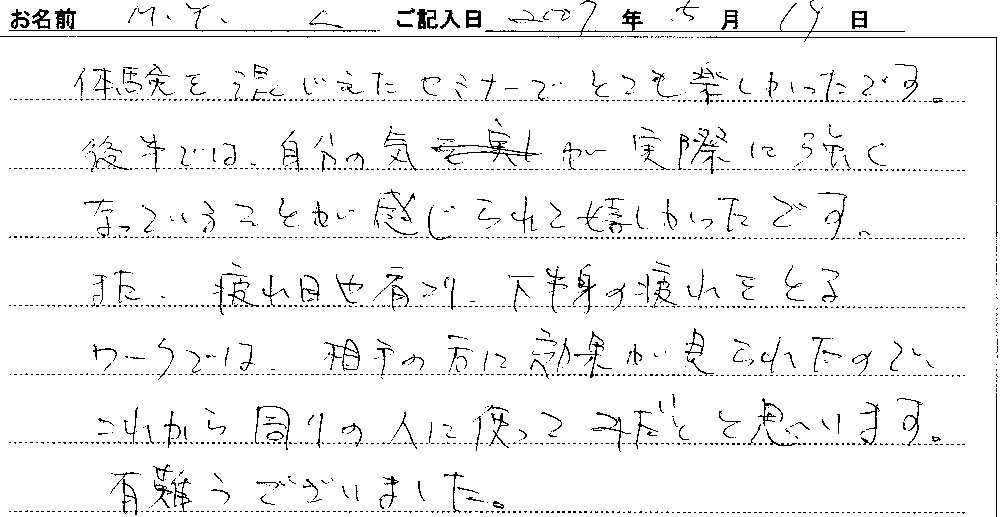 お名前 M.Y. ご記入日 2007年 5月 19日
体験を混じえたセミナーでとても楽しかったです。
後半では、自分の気が実際に強く
なっていることが感じられて嬉しかったです。
また、疲れ目や肩コリ、下半身の疲れをとる
ワークでは、相手の方に効果が見られたので、
これから周りの人に使って と思います。
有難うございました。